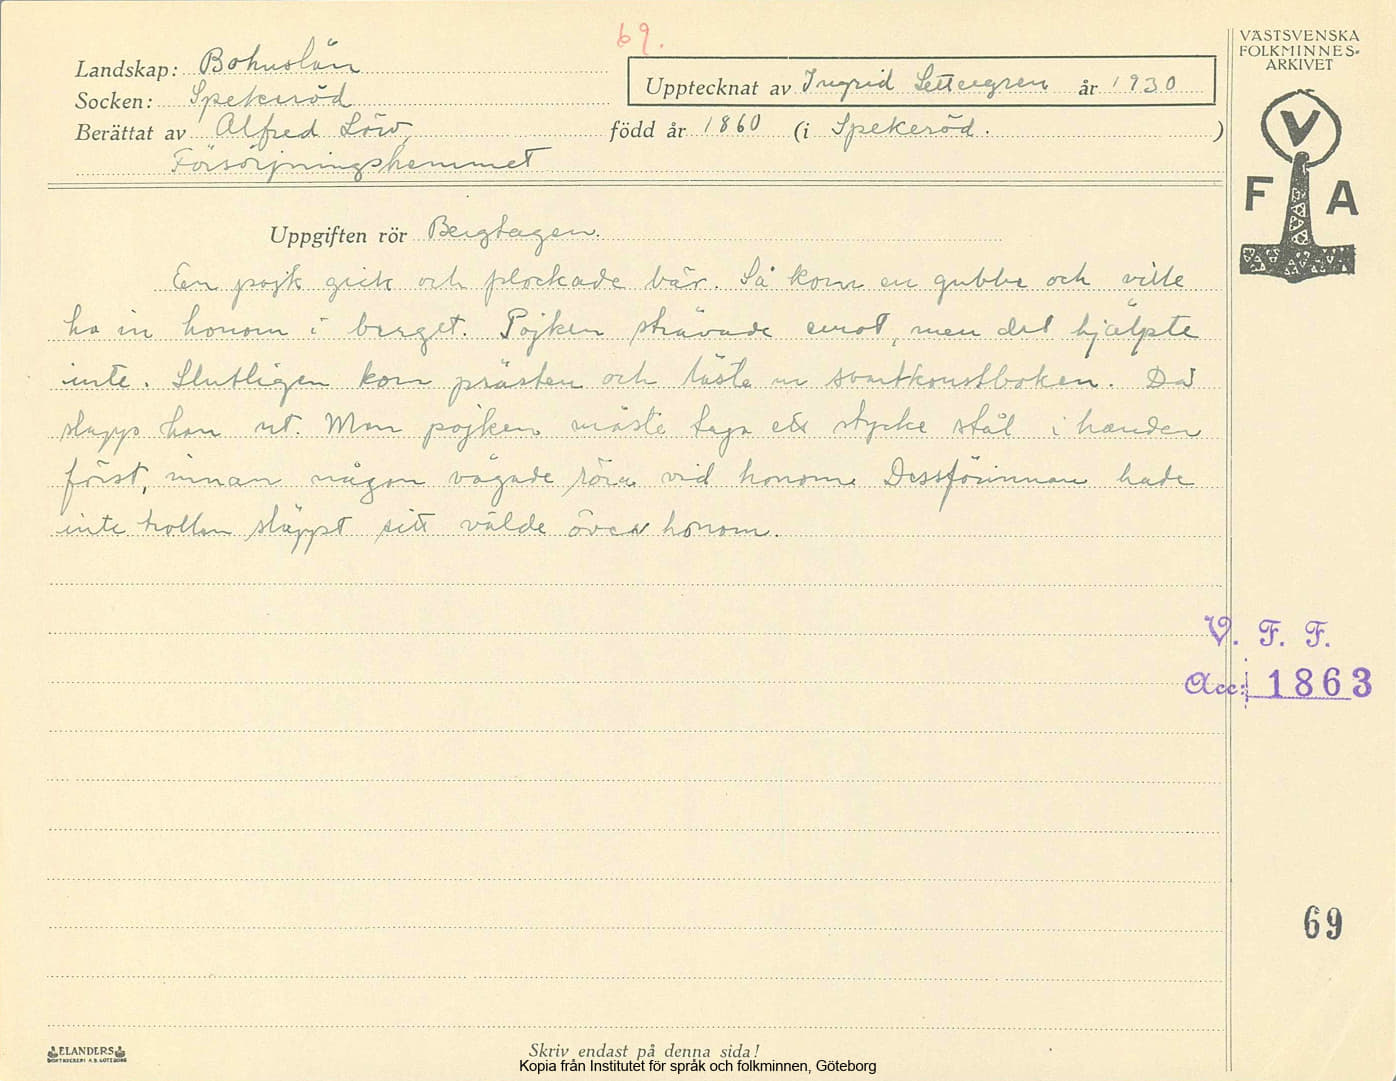 69.
VÄSTSVENSKA
FOLKMINNES-
ARKIVET
Landskap: Bohuslän
Socken: Spekeröd
Upptecknat av Ingrid Settergren år 1930
Berättat av Alfred Löw, född år 1860 (i Spekeröd. )
Försörjningshemmet
V
F A
Uppgiften rör Bergtagen.
En pojk gick och plockade bär. Så kom en gubbe och ville
ha in honom i berget. Pojken strävade emot, men det hjälpte
inte. Slutligen kom prästen och läste ur svartkonstboken. Då
slapp han ut. Men pojken måste taga ett stycke stål i handen
först, innan någon vågade röra vid honom. Dessförinnan hade
inte trollen släppt sitt välde över honom.
V. F. F.
Acc: 1863
69
ELANDERS
BOKTRYCKERI A.B. GÖTEBORG
Skriv endast på denna sida!
Kopia från Institutet för språk och folkminnen, Göteborg